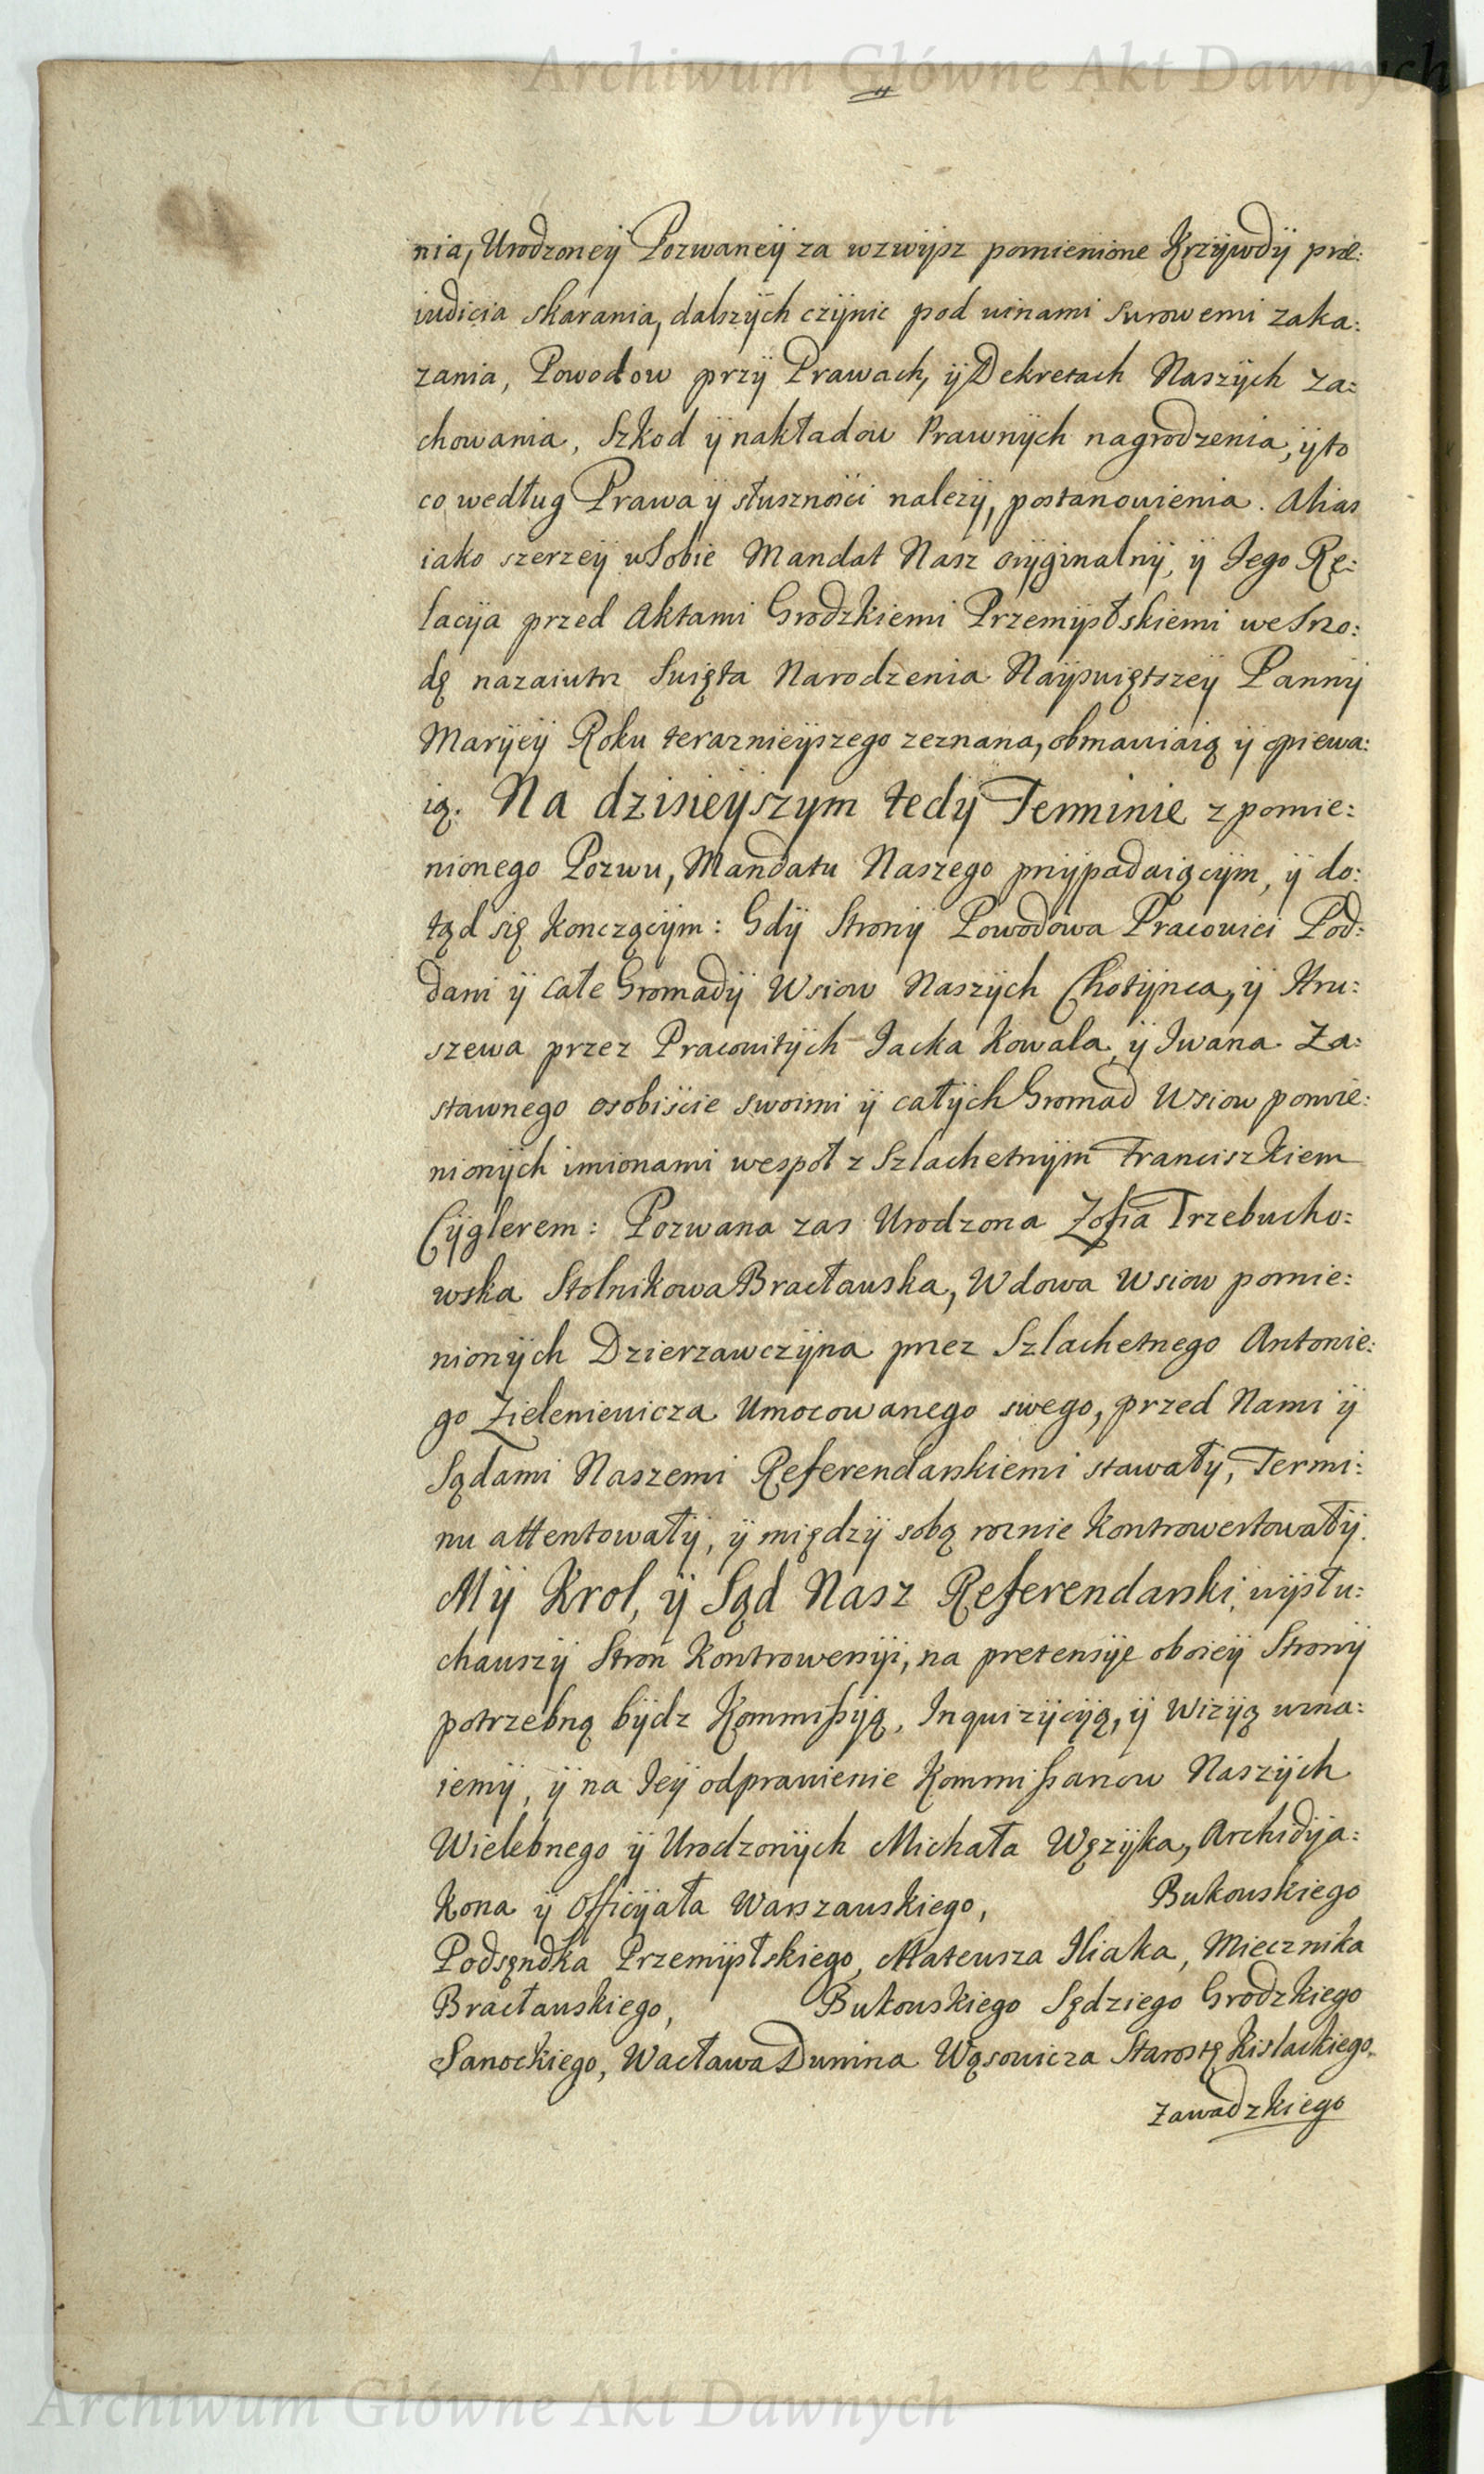 Archiwum Główne Akt Dawnych
nia, Urodzoneÿ Pozwaneÿ za wzwÿsz pomienione Krzÿwdÿ præ:
iudicia skarania, dalszÿch czÿnic pod winami surowemi zaka:
zania, Powodow przÿ Prawach, ÿ Dekretach Naszÿch za:
chowania, Szkod ÿ nakładow Prawnÿch nagrodzenia, ÿ to
co według Prawa ÿ słusznośći nalezÿ, postanowienia. Alias
iako szerzeÿ w Sobie Mandat Nasz orÿginalnÿ, ÿ Jego Re:
lacÿa przed Aktami Grodzkiemi Przemÿslskiemi we Srzo:
dę nazaiutrz Swięta Narodzenia Naÿswiętszeÿ Pannÿ
Marÿeÿ Roku teraznieÿszego zeznana, obmawiaią ÿ opiewa:
ią. Na dzisieÿszym tedÿ Terminie z pomie:
nionego Pozwu, Mandatu Naszego przÿpadaiącÿm, ÿ do:
tąd się konczącÿm: Gdÿ Stronÿ Powodowa Pracowici Pod:
dani ÿ Całe Gromadÿ Wsiow Naszÿch Chotÿnca, ÿ Hru:
szewa przez Pracowitÿch Jacka Kowala, ÿ Iwana Za:
stawnego osobiście swoimi ÿ całÿch Gromad Wsiow pomie:
nionÿch imionami wespoł z Szlachetnÿm Franciszkiem
Cÿglerem: Pozwana zas Urodzona Zofia Trzebucho:
wska Stolnikowa Bracławska, Wdowa Wsiow pomie:
nionÿch Dzierzawczÿna przez Szlachetnego Antonie:
go Zieleniewicza Umocowanego swego, przed Nami ÿ
Sądami Naszemi Referendarskiemi stawałÿ, Termi:
nu attentowałÿ, ÿ międzÿ sobą roznie kontrowertowałÿ.
Mÿ Krol, ÿ Sąd Nasz Referendarski, wÿsłu:
chawszÿ Stron Kontrowersÿi, na pretensÿe oboieÿ Stronÿ
potrzebną bÿdz Kommißÿą, Inquizÿcÿą, ÿ Wizÿą uzna:
iemÿ, ÿ na Jeÿ odprawienie Kommißarzow Naszÿch
Wielebnego ÿ Urodzonÿch Michała Węzÿka, Archidÿa:
kona ÿ Officÿała Warszawskiego, Bukowskiego
Podsęndka Przemÿslskiego, Mateusza Iliaka, Miecznika
Bracławskiego, Bukowskiego Sędziego Grodzkiego
Sanockiego, Wacława Dunina Wąsowicza Starostę Kislackiego,
Zawadzkiego
Archiwum Główne Akt Dawnych